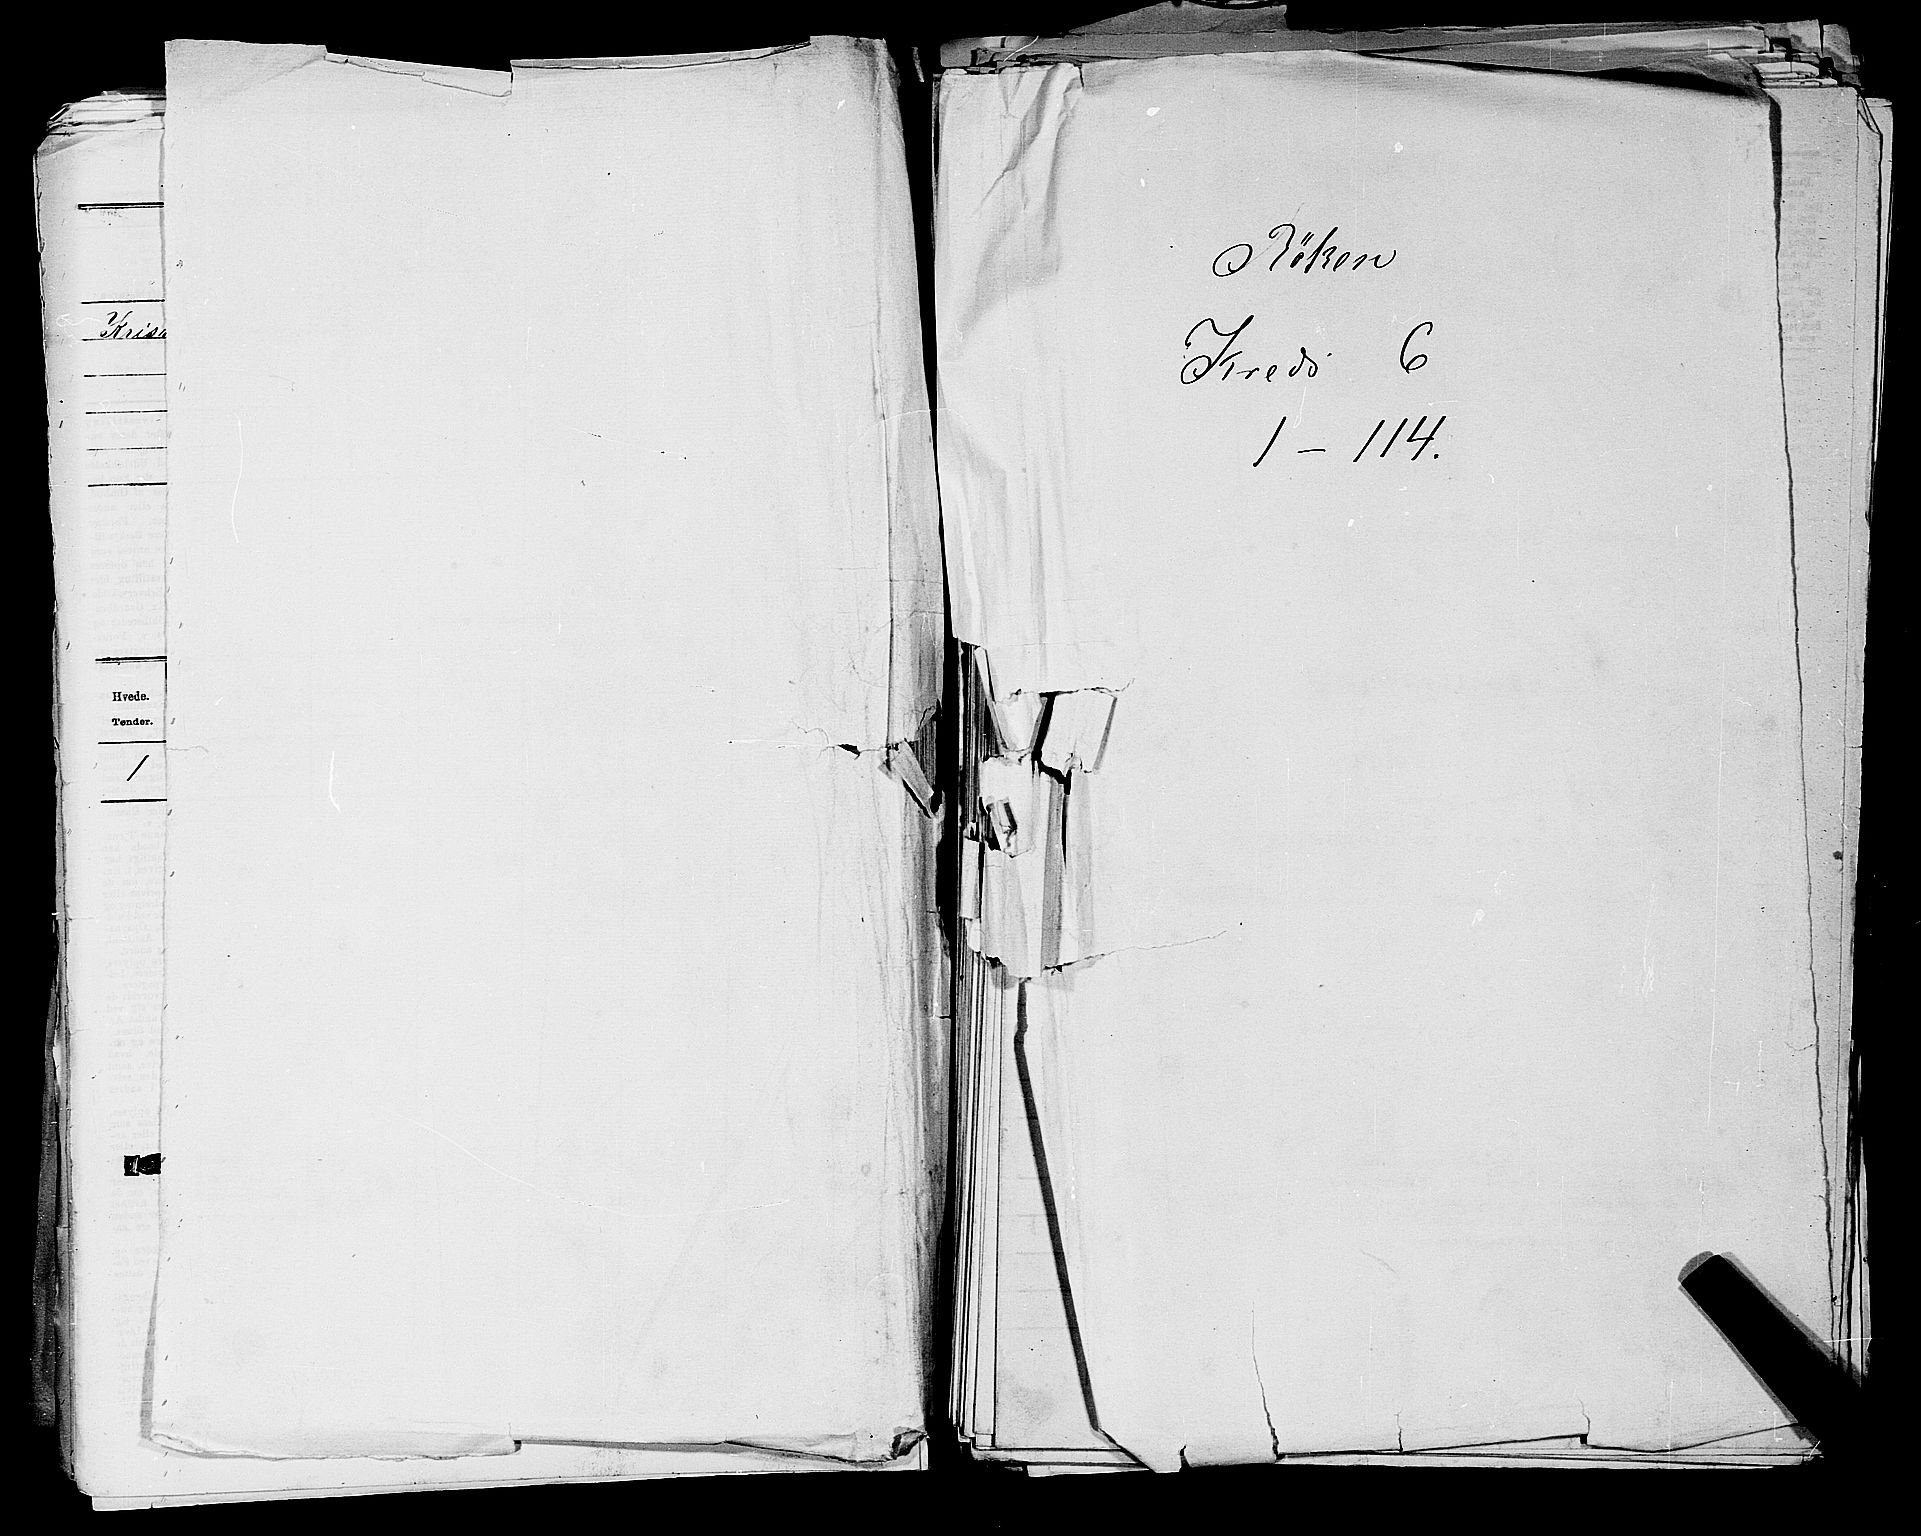 Hvede.
Tønder.
1
Röken
Kreds 6
1 – 114.